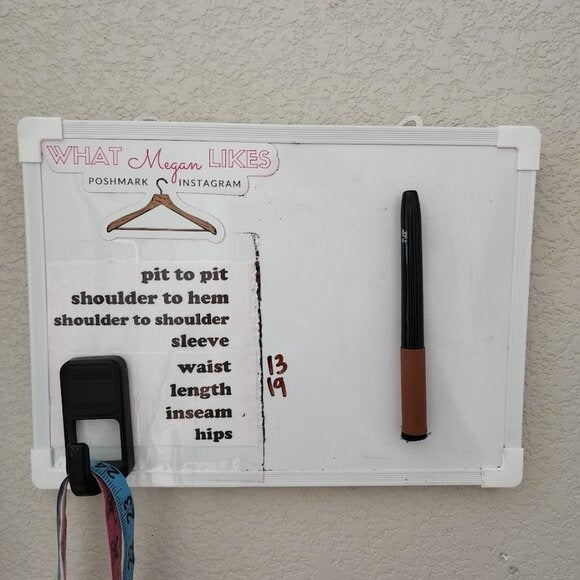 WHAT Megan LIKES
POSHMARK INSTAGRAM
pit to pit
shoulder to hem
shoulder to shoulder
sleeve
waist 13
length 19
inseam
hips